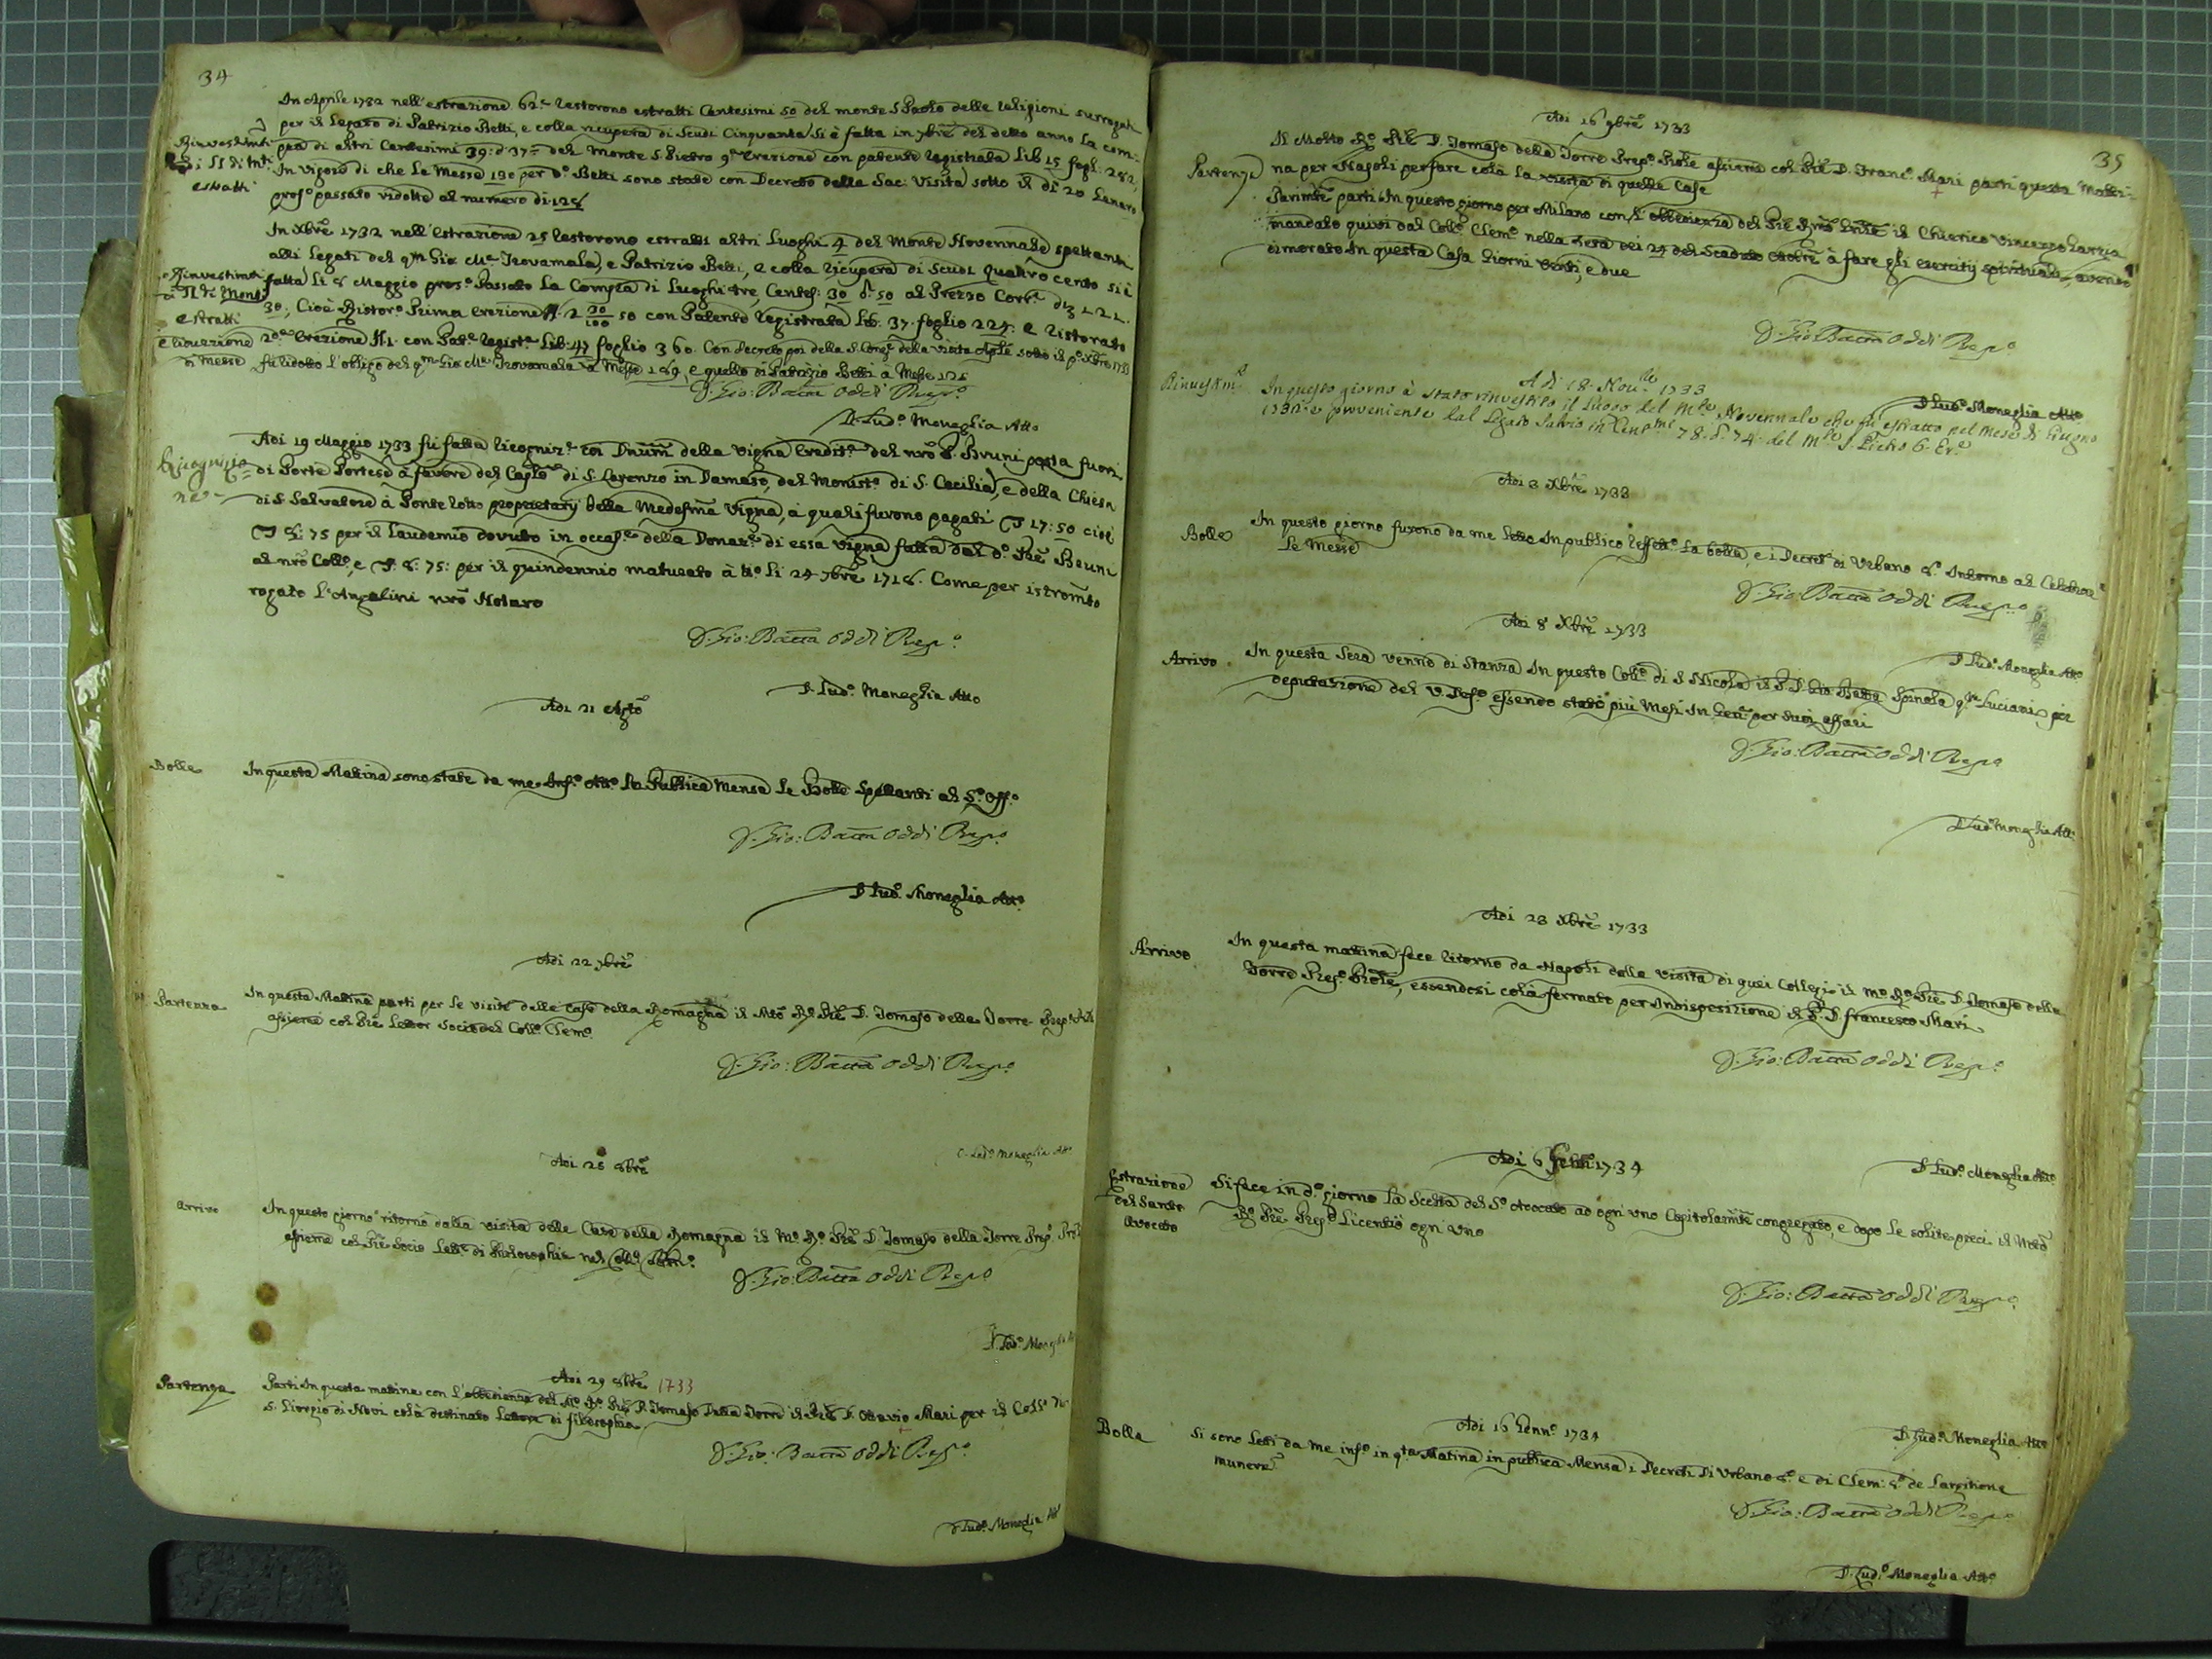 34
In Aprile 1732 nell'estrazione 62.ª restorono estratti Centesimi 50 del monte S Paolo delle religioni surrogati
per il Legato di Patrizio Betti, e colla ricupera di Scudi Cinquanta si è fatta in 7bre del detto anno la com-
Rinvestimti
pra di altri Centesimi 39: d 37= del Monte S. Pietro 9ª erezione con patente registrata Lib 15 fogl. 282,
di LL di Mti
In vigore di che le Messe 130 per d.º Betti sono state con Decreto della Sac: Visita sotto il dì 20 Genaro
estratti
pros.º passato ridotte al numero di 128
In Xbre 1732 nell'estrazione 25 restorono estratti altri Luoghi 4 del Monte Novennale spettanti
alli Legati del qm Gio Mª Trovamala, e Patrizio Betti, e colla ricupera di Scudi quattro cento si è
Rinvestimti
fatta li 8 Maggio pros.º Passato la Compra di Luoghi tre, Centes: 30 d. 50 al Prezzo Corr.e di 122.
di LL di Monti
30; Cioè Ristor.º Prima erezione LL. 2 30/100 50 con Patente registrata Lib. 37. foglio 224: e Ristorato
estratti
2.ª erezione LL 1. con Pat.e regist.ª Lib: 47 foglio 360. Con decreto poi della S. Cong.e della Visita Aplica sotto il p.º Xbre 1733
e riduzione
di Messe
fu ridotto l'obligo del qm Gio Mª Trovamala a Messe 169, e quello di Patrizio Betti a Messe 126
D. Gio: Batta Oddi Prep.º
D. Lud.º Moneglia Atto
Adi 19 Maggio 1733 fu fatta licogniz.e in Dnum della Vigna eredit.ª del nro P. Bruni posta fuori
Ricognizio
ne
di Porta Portese a favore del Caplo di S. Lorenzo in Damaso, del Monist.º di S. Cecilia, e della Chiesa
di S. Salvatore a Ponte rotto proprietarij della Medesma Vigna, a quali furono pagati 17:50 cioè
8: 75 per il Laudemio dovuto in occas.e della Donaz.e di essa vigna fatta dal d.º Pre Bruni
al nro Coll.º, e 8: 75: per il quindennio maturato à tt.º li 24 7bre 1718. Come per istromto
rogato l'Angelini nro Notaro
D. Gio: Batta Oddi Prep.º
D. Lud.º Moneglia Atto
Adi 21 Agto
Bolle
In questa Matina sono state da me Inf.º Att.º In Publica Mensa le Bolle Spettanti al S.º Off.º
D. Gio: Batta Oddi Prep.º
D Lud.º Moneglia Att.º
Adi 22 7bre
Partenza
In questa Matina partì per le visite delle Case della Romagna il Mto Rº Pre D. Tomaso della Torre Prep.º Prole
assieme col Pre Lettor Socio del Coll.º Clem.º
D. Gio: Batta Oddi Prep.º
D. Lud.º Moneglia Att.º
Adi 28 8bre
Arrivo
In questo giorno ritornò dalla visita delle Case della Romagna il Mº Rº Pre D Tomaso della Torre Prep.º Prole
assieme col Pre Socio Lett.e di Philosophia nel Coll.º Clem.º
D. Gio: Batta Oddi Prep.º
D. Lud.º Moneglia Att
Adi 29 8bre 1733
Partenza
Partì In questa matina con l'obbedienza del Mº Rº Pre D. Tomaso Della Torre il Pre D. Ottavio Mari per il Coll.º di
S. Giorgio di Novi colà destinato Lettore di filosophia
D. Gio: Batta Oddi Prep.º
D. Lud.º Moneglia Att
35
Adi 16 9bre 1733
Il Molto Rº Pre D. Tomaso della Torre Prep.º Prole assieme col Pre D. Franc.º Mari partì questa Matti-
Partenza
na per Napoli per fare colà la visita di quelle Case
Parimte partì In questo giorno per Milano con l'obbedienza del Pre Rmo Gnle il Chierico Vincenzo Garzia
mandato quivi dal Coll.º Clem.º nella sera dei 24 del Scaduto ottobre à fare gli esercitij spirituali, avendo
dimorato In questa Casa Giorni Venti, e due
D. Gio: Batta Oddi Prep.º
D Lud.º Moneglia Atto
A di 18. Nov.bre 1733
Rinvestm.to
In questo giorno è stato rinvestito il Luogo del M.te Novennale che fu estratto nel mese di Giugno
1731 e proveniente dal Legato Salvio in Cent.mi 78. d. 74. del M.te S. Pietro 6. Er.e
Adi 3 Xbre 1733
Bolle
In questo giorno furono da me lette In publico Reffett.º la bolla, e i Decreti di Urbano 8.º Intorno al Celebrar
le Messe
D. Gio: Batta Oddi Prep.º
D Lud.º Moneglia Att.º
Adi 8 Xbre 1733
Arrivo
In questa Sera venne di Stanza In questo Coll.º di S Nicola il P. D. Gio Batta Spinola qm Luciano, per
deputazione del V. Def.º essendo stato più Mesi In Gen.ª per suoi affari
D. Gio: Batta Oddi Prep.º
D Lud.º Moneglia Att.º
Adi 23 Xbre 1733
Arrivo
In questa matina fece ritorno da Napoli dalla visita di quei Collegi il Mº Rº Pre D Tomaso della
Torre Prep.º Prole, essendosi colà fermato per Indisposizione il P. D. Francesco Mari
D. Gio: Batta Oddi Prep.º
D Lud.º Moneglia Att.º
Adi 6 Genn.º 1734
Estrazione
del Santo
Avocato
Si fece in d.º giorno la Scelta del S.º Avocato ad ogni uno Capitolarmte congregato, e dopo le solite preci il Molto
Rº Pre Prep.º Licentiò ogni uno
D. Gio: Batta Oddi Prep.º
D Lud.º Moneglia Atto
Adi 16 Genn.º 1734
Bolla
Si sono Letti da me inf.º in q.ta Matina in publica Mensa i Decreti di Urbano 8.º e di Clem: 8.º de Largitione
munerum
D. Gio: Batta Oddi Prep.º
D. Lud.º Moneglia Att.º